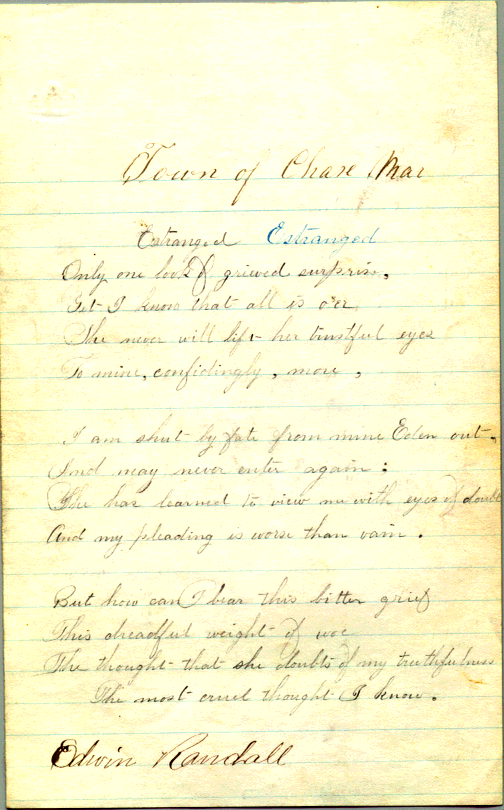 Town of Chase Mar
Estranged Estranged
Only one look of grieved surprise,
Yet I know that all is o'er
She never will lift her trustful eyes
To mine, confidingly, more,
I am shut by fate from mine Eden out.
And may never enter again:
She has learned to view me with eyes of doubt
And my pleading is worse than vain.
But how can I bear this bitter grief
This dreadful weight of woe
The thought that she doubts of my truthfulness
The most cruel thought I know.
Edwin Randall